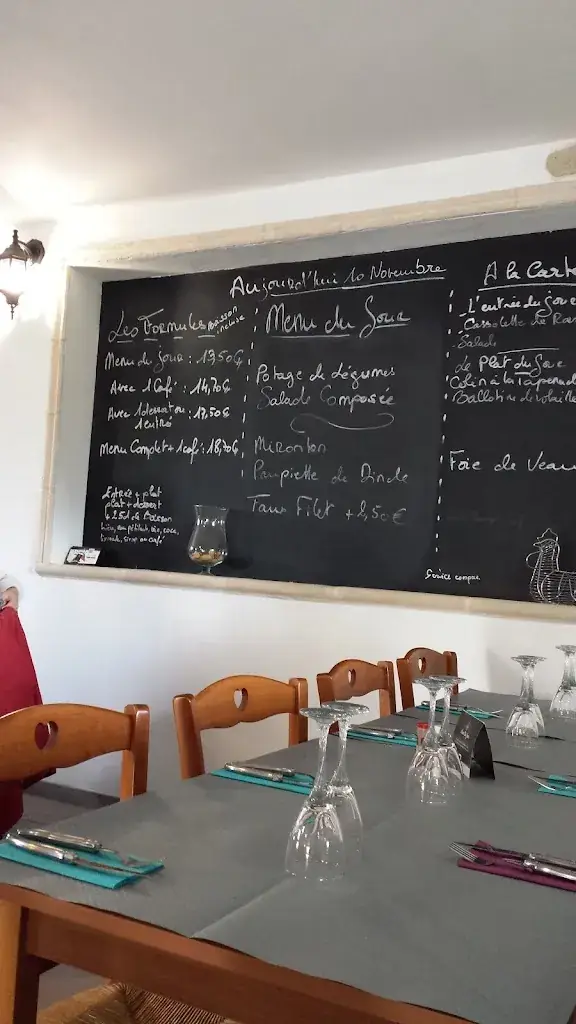 Aujourd'hui 10 Novembre
Les Formules boisson incluse
Menu du Jour : 13,50€
Avec 1 Café : 14,70€
Avec 1 dessert ou 1 entrée : 17,50€
Menu Complet + 1 café : 18,70€
Entrée + plat
plat + dessert
+ 25cl de Boisson
Menu du Jour
Potage de Légumes
Salade Composée
Mironton
Paupiette de Dinde
Faux Filet +2,50€
A la Carte
L'entrée du jour
Cassolette de
Salade
Le Plat du Jour
Colin à la
Ballotine de volaille
Foie de Veau
Service compris